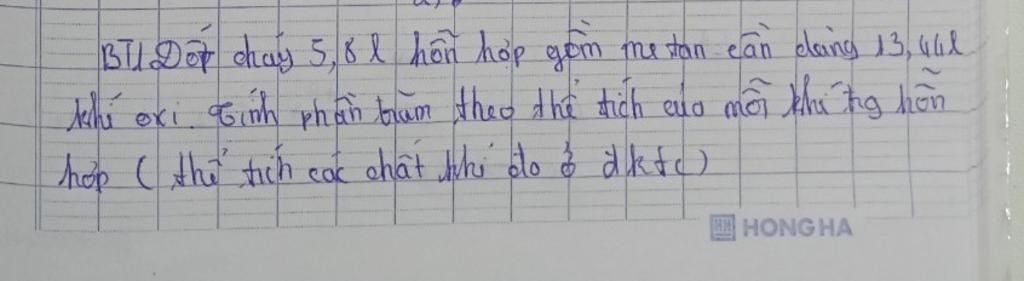 BT1 Đốt cháy 5,6 l hỗn hợp gồm me tan cần dùng 13,44l
khí oxi. Tính phần trăm theo thể tích của mỗi khí tg hỗn
hợp ( thể tích các chất khí đo ở đktc)
HONG HA